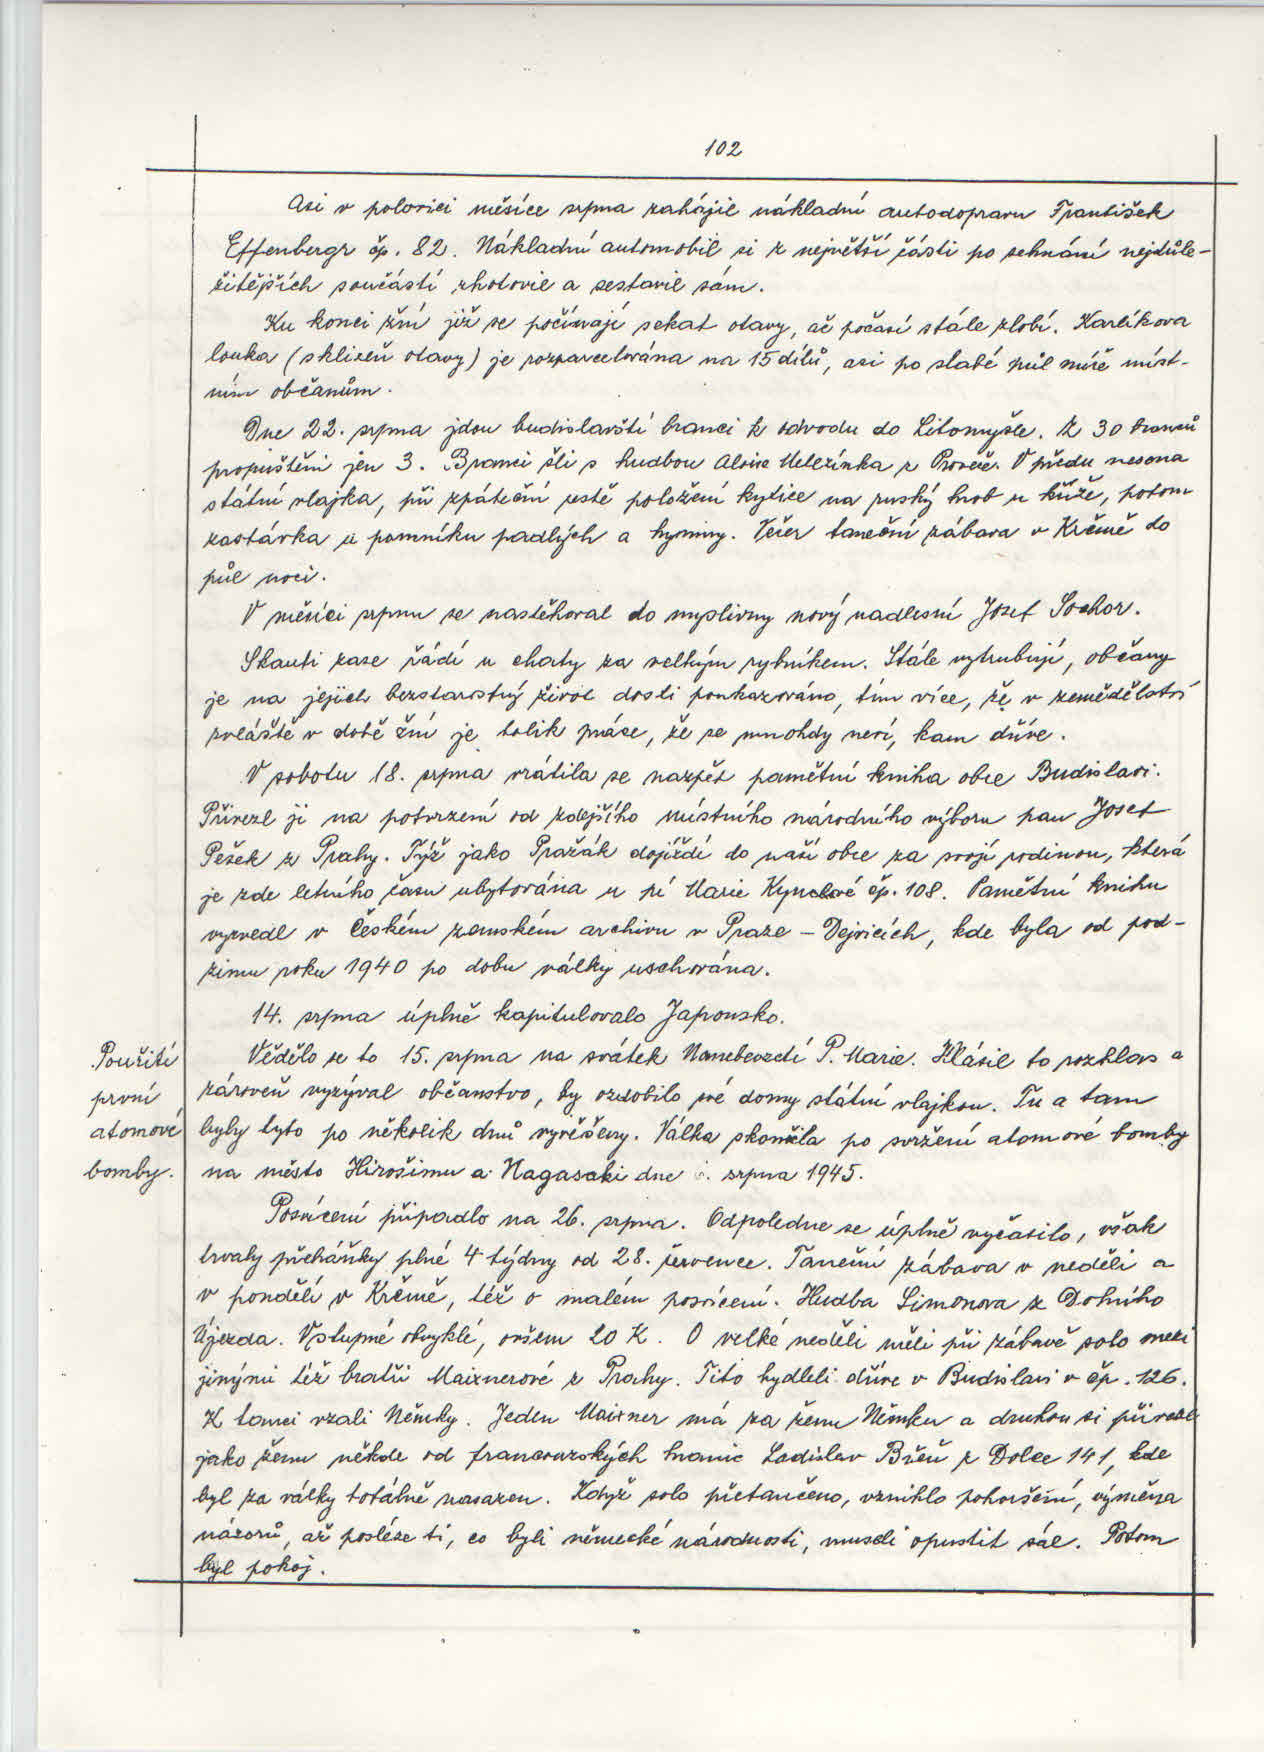 102
Asi v polovici měsíce srpna zahájil nákladní autodopravu František
Effenbergr čp. 82. Nákladní automobil si z největší části po sehnání nejdůle-
žitějších součástí zhotovil a sestavil sám.
Ku konci žní již se počínají sekat otavy, ač počasí stále zlobí. Karlíkova
louka (sklizeň otavy) je rozparcelována na 15 dílů, asi po slabé půl míře míst-
ním občanům.
Dne 22. srpna jdou budislavští branci k odvodu do Litomyšle. Z 30 branců
propuštěni jen 3. Branci šli s hudbou Aloise Melezínka z Proseče. V předu nesena
státní vlajka, při zpáteční cestě položení kytice na ruský hrob u kříže, potom
zastávka u pomníku padlých a hymny. Večer taneční zábava v Krčmě do
půl noci.
V měsíci srpnu se nastěhoval do myslivny nový nadlesní Josef Sochor.
Skauti zase řádí u chaty za velkým rybníkem. Stále vytrubují, občany
je na jejich bezstarostný život dosti poukazováno, tím více, že v zemědělství
zvláště v době žní je tolik práce, že se mnohdy neví, kam dříve.
V sobotu 18. srpna vrátila se nazpět pamětní kniha obce Budislavi.
Přivezl ji na potvrzení od zdejšího místního národního výboru pan Josef
Pešek z Prahy. Týž jako Pražák dojíždí do naší obce za svojí rodinou, která
je zde letního času ubytována u pí Marie Kynclové čp. 108. Pamětní knihu
vyzvedl v Českém zemském archivu v Praze - Dejvicích, kde byla od pod-
zimu roku 1940 po dobu války uschována.
14. srpna úplně kapitulovalo Japonsko.
Použití
první
atomové
bomby.
Vědělo se to 15. srpna na svátek Nanebevzetí P. Marie. Hlásil to rozhlas a
zároveň vyzýval občanstvo, by ozdobilo své domy státní vlajkou. Tu a tam
byly tyto po několik dnů vyvěšeny. Válka skončila po svržení atomové bomby
na město Hirošimu a Nagasaki dne . srpna 1945.
Posvícení připadlo na 26. srpna. Odpoledne se úplně vyčasilo, však
trvaly přeháňky plné 4 týdny od 28. července. Taneční zábava v neděli a
v pondělí v Krčmě, též o malém posvícení. Hudba Simonova z Dolního
Újezda. Vstupné obvyklé, ovšem 20 K. O velké neděli měli při zábavě solo mezi
jinými též bratři Maixnerové z Prahy. Tito bydleli dříve v Budislavi v čp. 126.
K tanci vzali Němky. Jeden Maixner má za ženu Němku a druhou si přivezl
jako ženu někde od francouzských hranic Ladislav Břeň z Dolce 141, kde
byl za války totálně nasazen. Když solo přetančeno, vzniklo pohoršení, výměna
názorů, až posléze ti, co byli německé národnosti, museli opustit sál. Potom
byl pokoj.